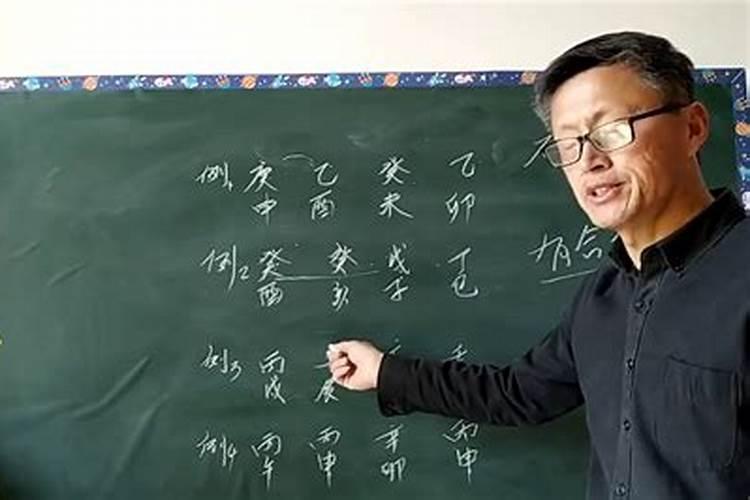 例1 庚 乙 癸 乙
申 酉 未 卯
例2 癸 癸 戊 丁
酉 亥 子 巳
有合
例3 丙
戌 辰
例4 丙 丙 辛 丙
午 申 卯 申